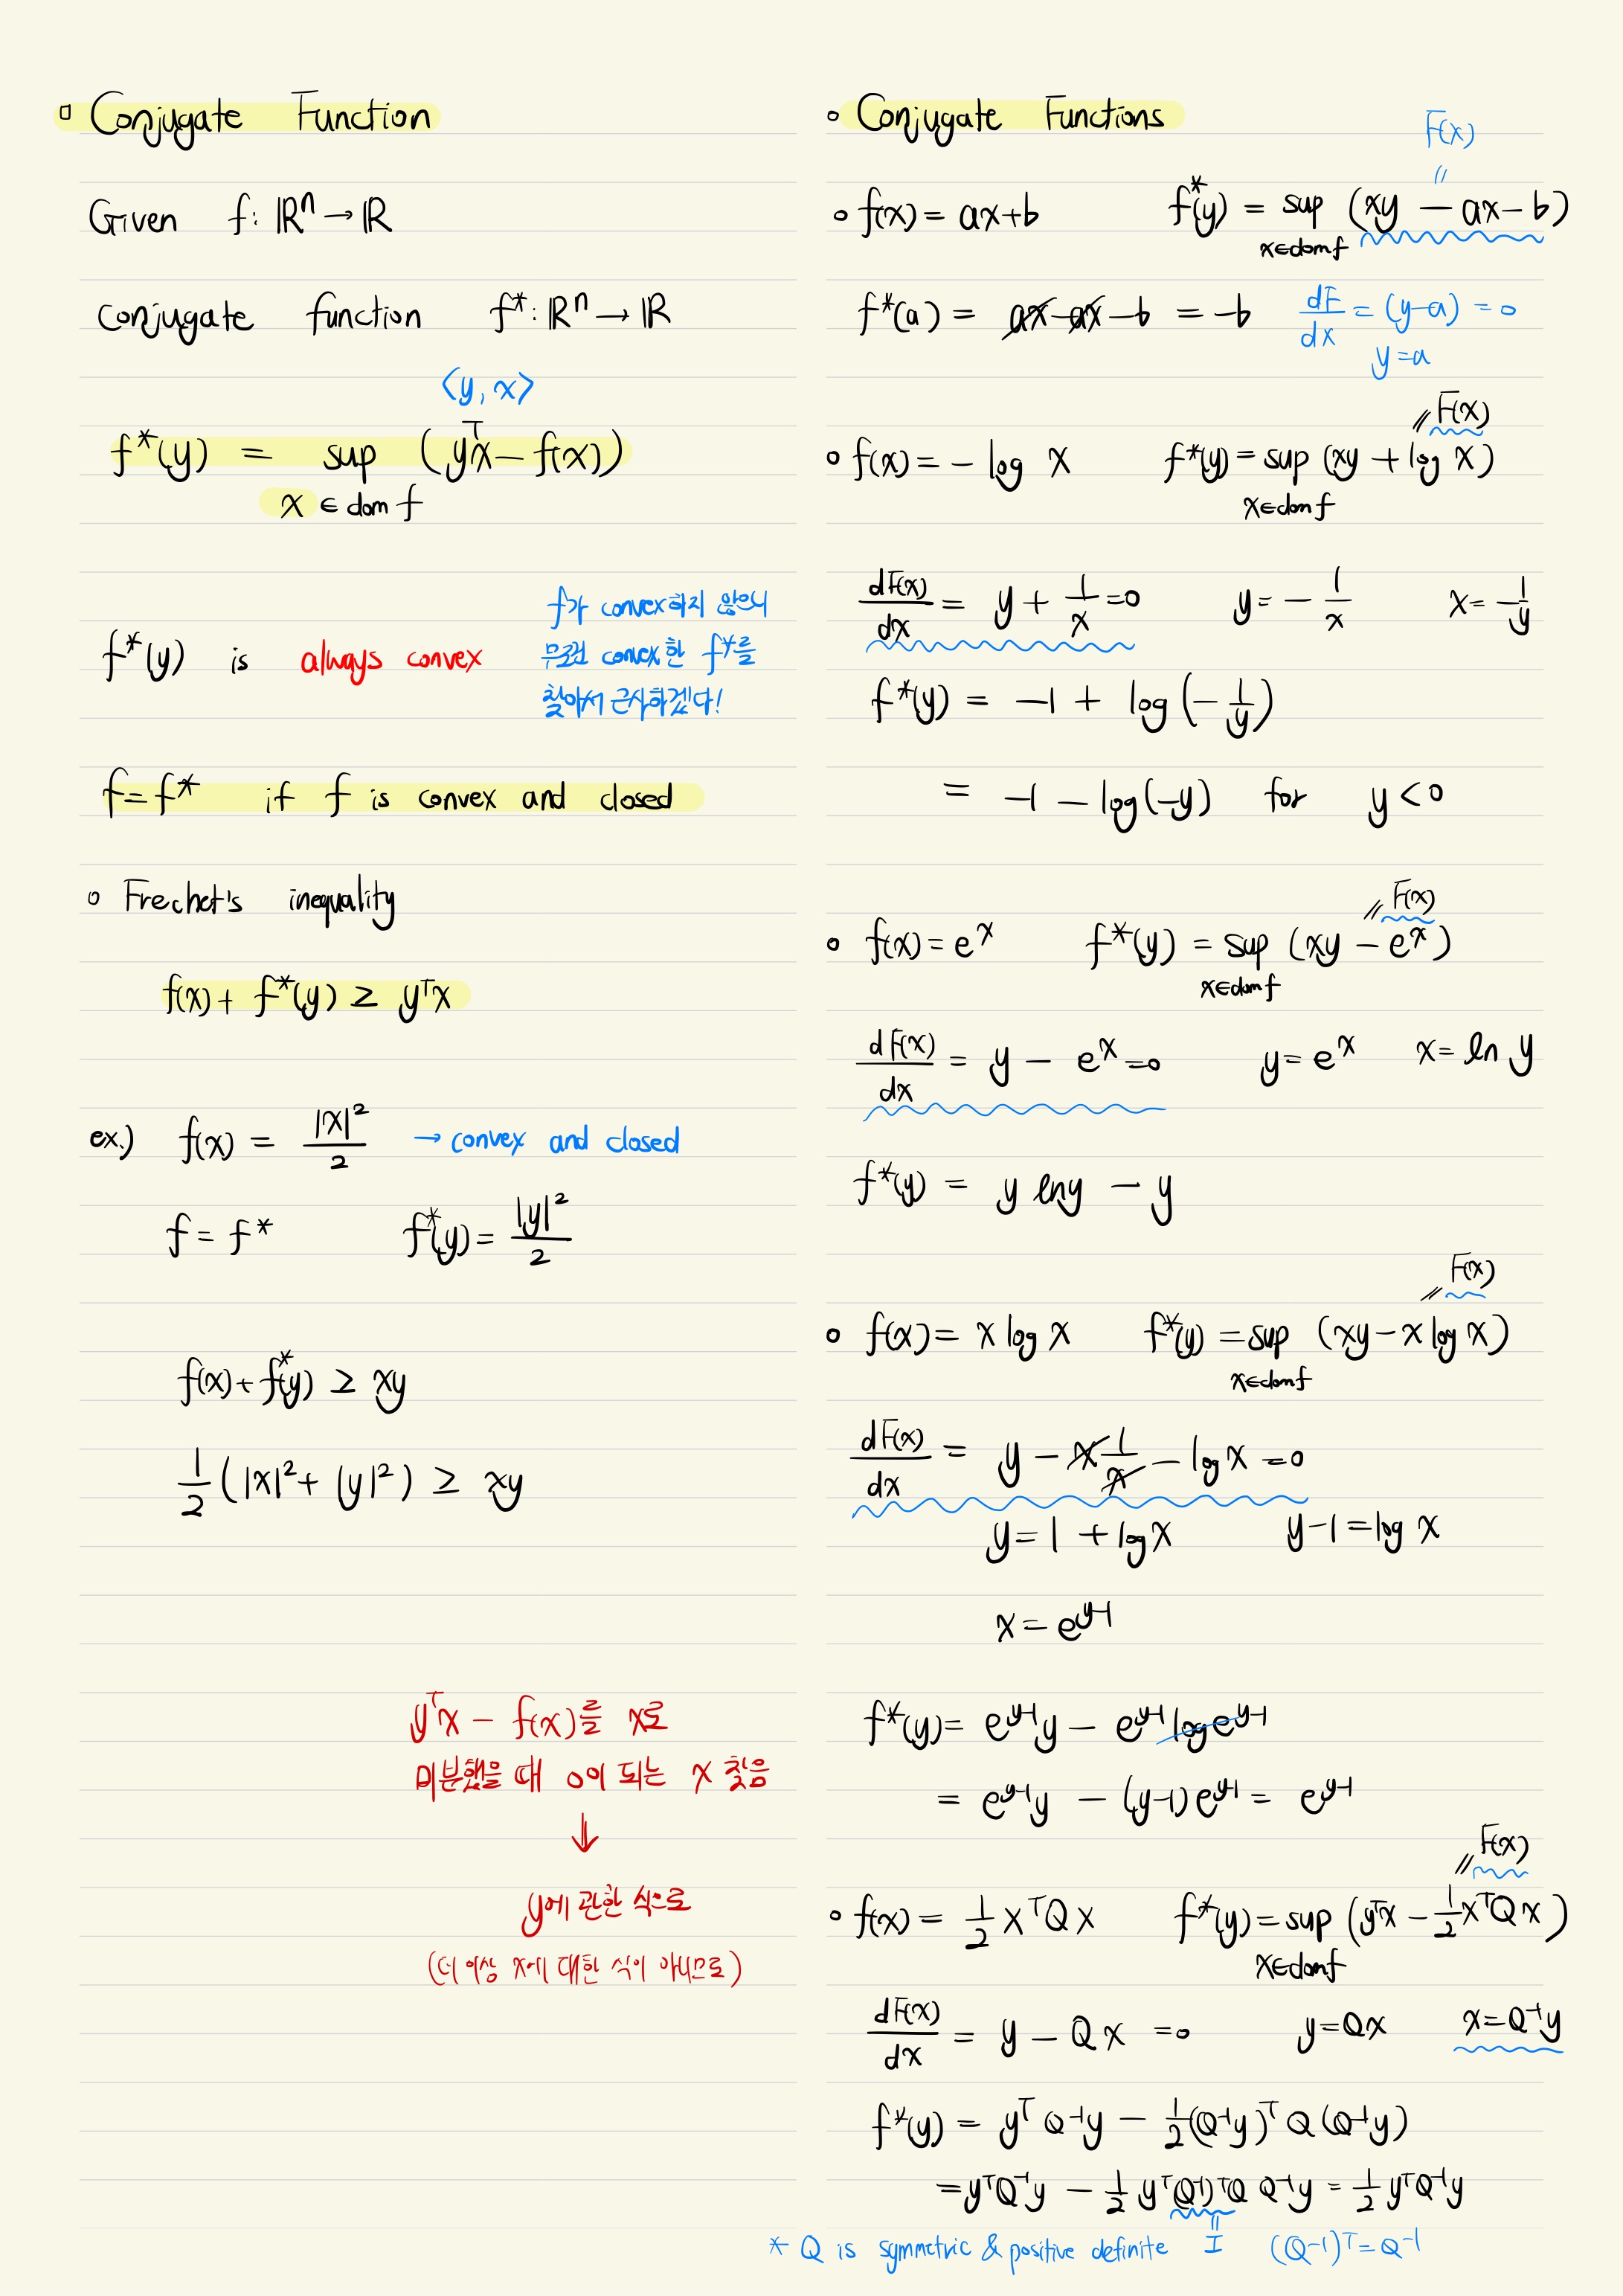 Conjugate Function
Given f: ℝⁿ → ℝ
conjugate function f*: ℝⁿ → ℝ
⟨y, x⟩
f*(y) = sup (yᵀx − f(x))
x ∈ dom f
f가 convex하지 않으니
무조건 convex한 f*를
찾아서 근사하겠다!
f*(y) is always convex
f = f* if f is convex and closed
Frechet's inequality
f(x) + f*(y) ≥ yᵀx
ex.) f(x) = |x|²/2 → convex and closed
f = f* f*(y) = |y|²/2
f(x) + f*(y) ≥ xy
1/2 (|x|² + |y|²) ≥ xy
yᵀx − f(x)를 x로
미분했을 때 0이 되는 x 찾음
↓
y에 관한 식으로
(더 이상 x에 대한 식이 아니므로)
Conjugate Functions
F(x)
"
f(x) = ax+b f*(y) = sup (xy − ax − b)
x∈dom f
f*(a) = ax − ax − b = −b dF/dx = (y−a) = 0
y = a
" F(x)
f(x) = − log x f*(y) = sup (xy + log x)
x∈dom f
dF(x)/dx = y + 1/x = 0 y = − 1/x x = − 1/y
f*(y) = −1 + log (− 1/y)
= −1 − log(−y) for y < 0
" F(x)
f(x) = eˣ f*(y) = sup (xy − eˣ)
x∈dom f
dF(x)/dx = y − eˣ = 0 y = eˣ x = ln y
f*(y) = y lny − y
" F(x)
f(x) = x log x f*(y) = sup (xy − x log x)
x∈dom f
dF(x)/dx = y − x 1/x − log x = 0
y = 1 + log x y−1 = log x
x = e^(y−1)
f*(y) = e^(y−1) y − e^(y−1) log e^(y−1)
= e^(y−1) y − (y−1) e^(y−1) = e^(y−1)
" F(x)
f(x) = 1/2 xᵀQx f*(y) = sup (yᵀx − 1/2 xᵀQx)
x∈dom f
dF(x)/dx = y − Qx = 0 y = Qx x = Q⁻¹y
f*(y) = yᵀQ⁻¹y − 1/2 (Q⁻¹y)ᵀ Q (Q⁻¹y)
= yᵀQ⁻¹y − 1/2 yᵀ(Q⁻¹)ᵀQ Q⁻¹y = 1/2 yᵀQ⁻¹y
* Q is symmetric & positive definite " I (Q⁻¹)ᵀ = Q⁻¹